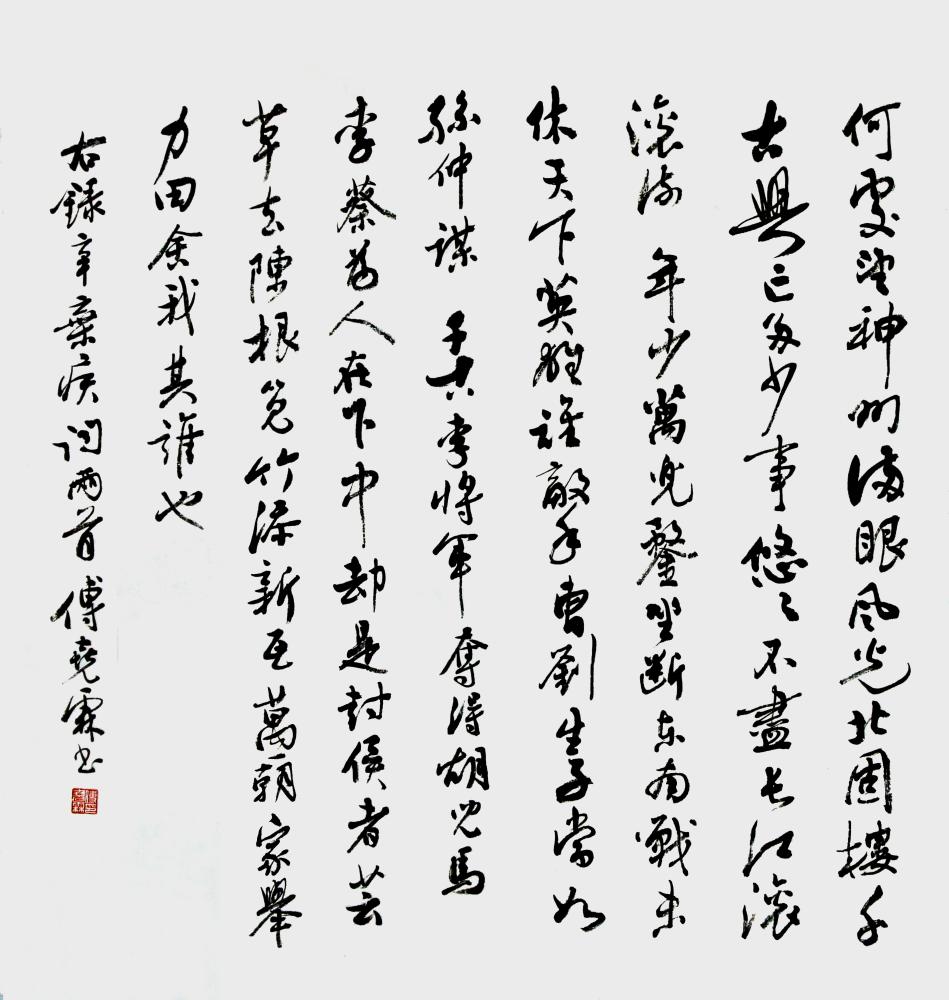 何處望神州滿眼风光北固樓千
古興亡多少事悠々不盡长江滾
滾流 年少萬兜鍪坐斷东南戰未
休天下英雄誰敵手曹劉生子當如
孫仲謀 千古李將軍奪得胡兒馬
李蔡為人在下中却是封侯者芸
草去陳根筧竹添新瓦萬朝家舉
力田舍我其誰也
右錄辛棄疾詞兩首傅堯霖书